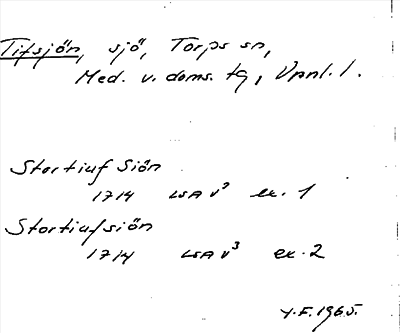 Tifsjön, sjö, Torps sn,
Med. v. doms. tg, Vpnl. l.
Stortiuf Siön
1714 LSA V² ex. 1
Stortiufsiön
1714 LSA V³ ex. 2
Y.F. 1965.